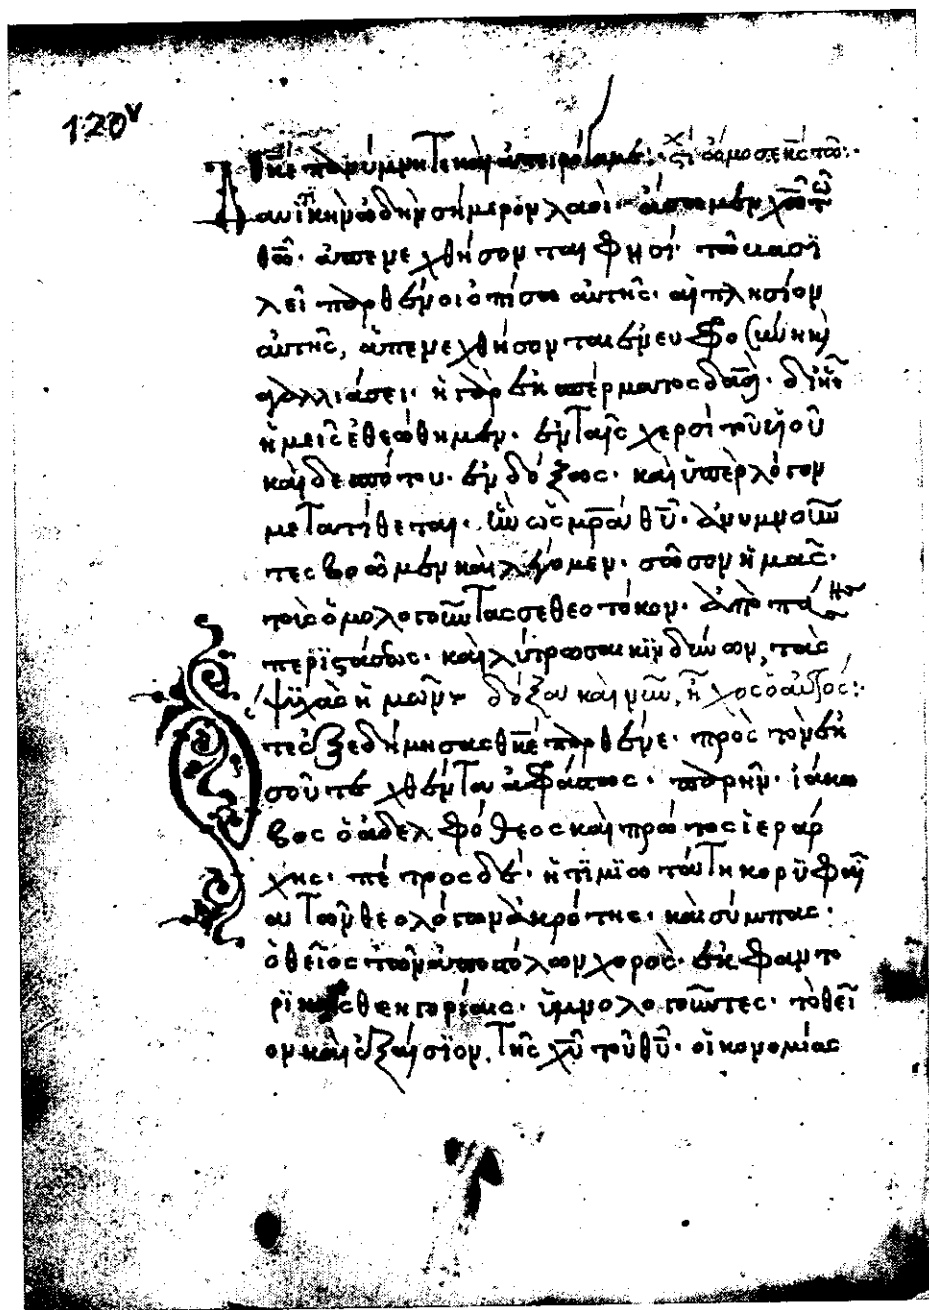 120v
θκὲ πανύμνητε καὶ ἀπειρόγαμε:· στί
αυϊτικὴν ὠδὴν σήμερον λαοί· ἄσωμεν χῶ τῶ
θῶ· ἀπενεχθήσονται φησί· τῶ βασϊ
λεῖ παρθένοι ὀπίσω αὐτῆς· αἱ πλησίον
αὐτῆς, ἀπενεχθήσονται ἐν εὐφροσύνη κ
ἀγαλλιάσει· ἡ γὰρ ἐκ σπέρματος δαδ· δι' ἧς
ἡμεῖς ἐθεώθημεν· ἐν ταῖς χερσὶ τοῦ υἱοῦ
καὶ δεσπότου· ἐνδόξως· καὶ ὑπὲρ λόγον
μετατίθεται· ἣν ὡς μρα θυ· ἀνυμνοῦν
τες βοῶμεν καὶ λέγομεν· σῶσον ἡμᾶς·
τοὺς ὁμολογοῦντας σε θεοτόκον· ἀπὸ πάσης
περϊστάσεως· καὶ λύτρωσαι κϊνδύνων, τὰς
ψϋχὰς ἡμῶν δόξα καὶ νῦν, ἦχος ὁ αὐτός:·
τε ἐξεδήμησας θκε παρθένε· πρὸς τὸν ἐκ
σοῦ τεχθέντα ἀφράστως· παρῆν· ἰάκω
βος ὁ ἀδελφόθεος καὶ πρῶτος ἱεράρ
χης· πέτρος δέ· ἡ τϊμϊωτάτη κορϋφαί
α τῶν θεολόγων ἀκρότης· καὶ σύμπας·
ὁ θεῖος τῶν ἀποστόλων χορὸς· ἐκφαντο
ρϊκαῖς θεηγορίαις· ὑμνολογοῦντες· τὸ θεῖ
ον καὶ ἐξαίσϊον, τῆς χυ τοῦ θυ· οἰκονομίας